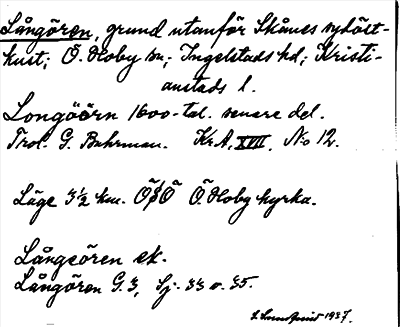 Långören, grund utanför Skånes sydöst-
kust; Ö. Hoby sn; Ingelstads hd; Kristi-
anstads l.
Longöörn 1600-tal. senare del.
Trol. G. Buhrman. Kr.A, XVIII, No 12.
Läge 3½ km. ÖSÖ Ö. Hoby kyrka.
Långören ek.
Långören G.3, Sj: 33 o. 35.
Lundquist 1937.